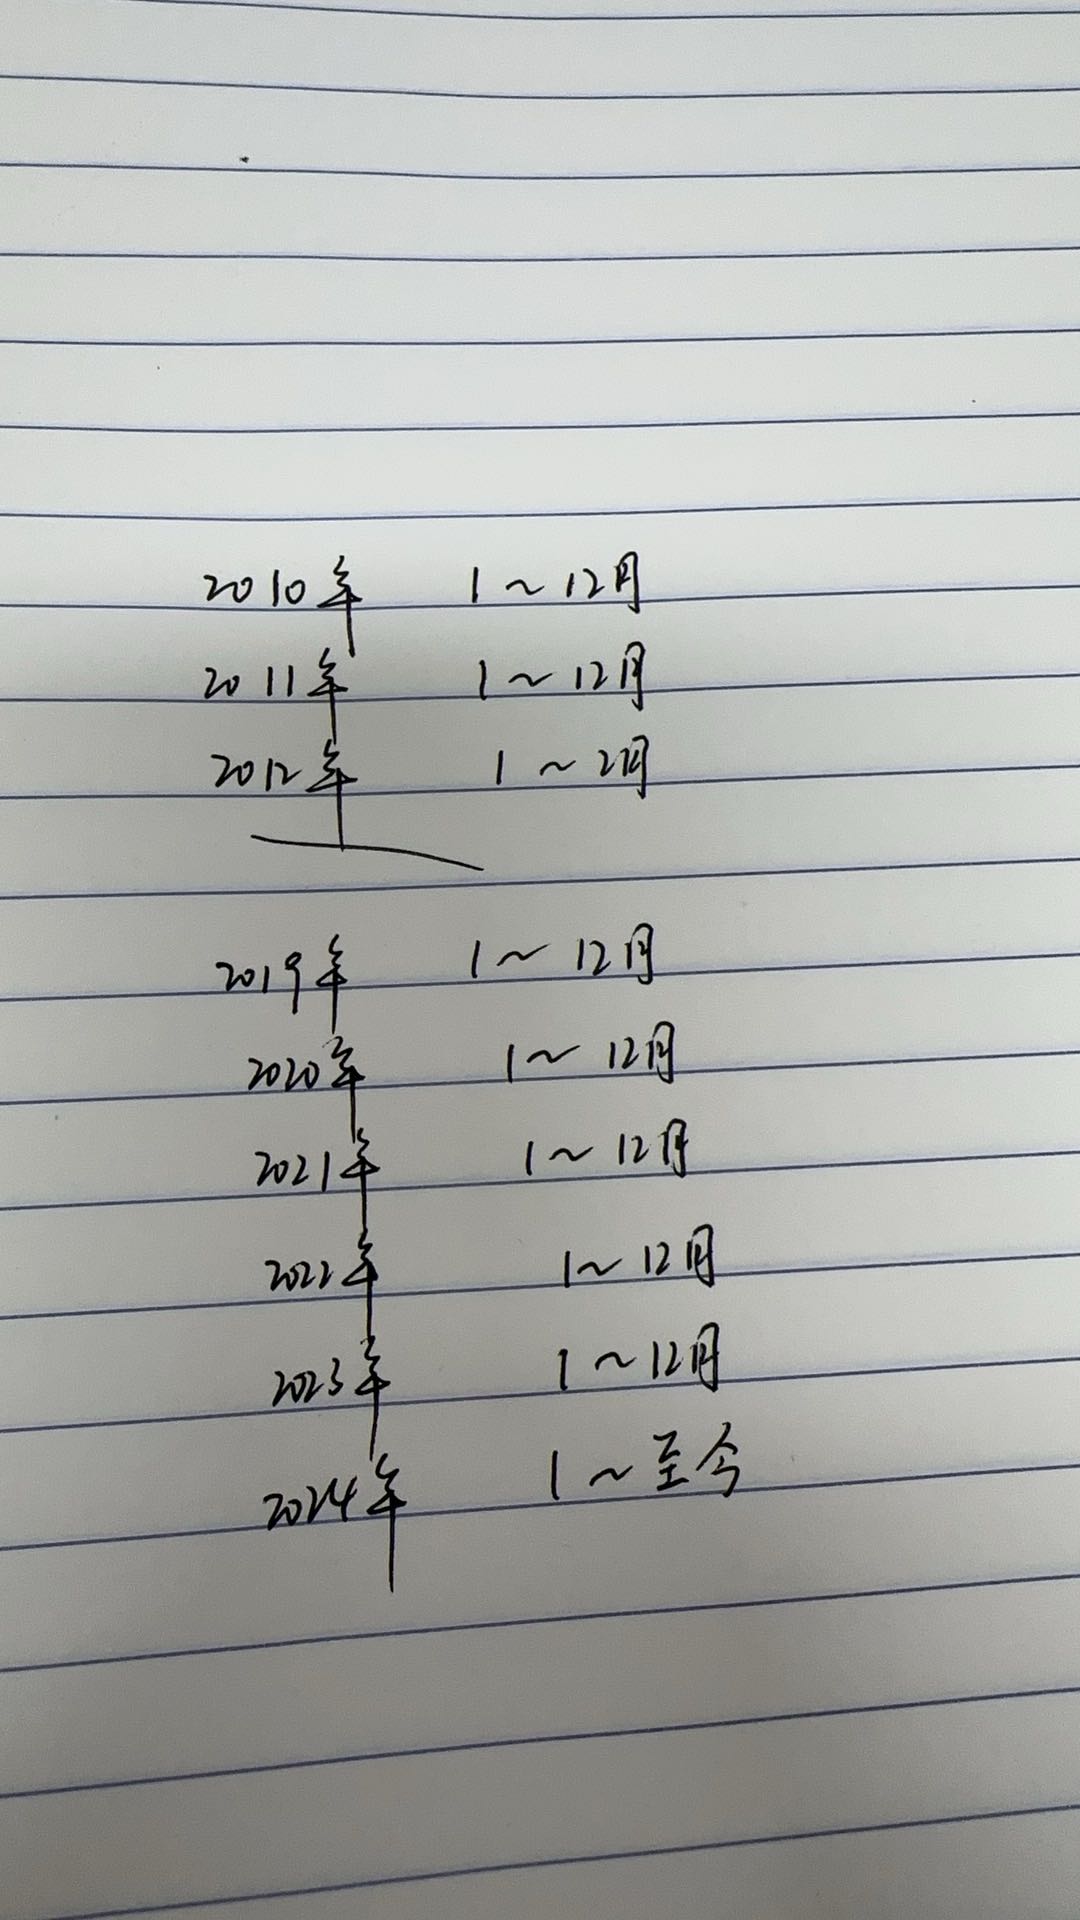 2010年 1~12月
2011年 1~12月
2012年 1~2月
2019年 1~12月
2020年 1~12月
2021年 1~12月
2022年 1~12月
2023年 1~12月
2024年 1~至今